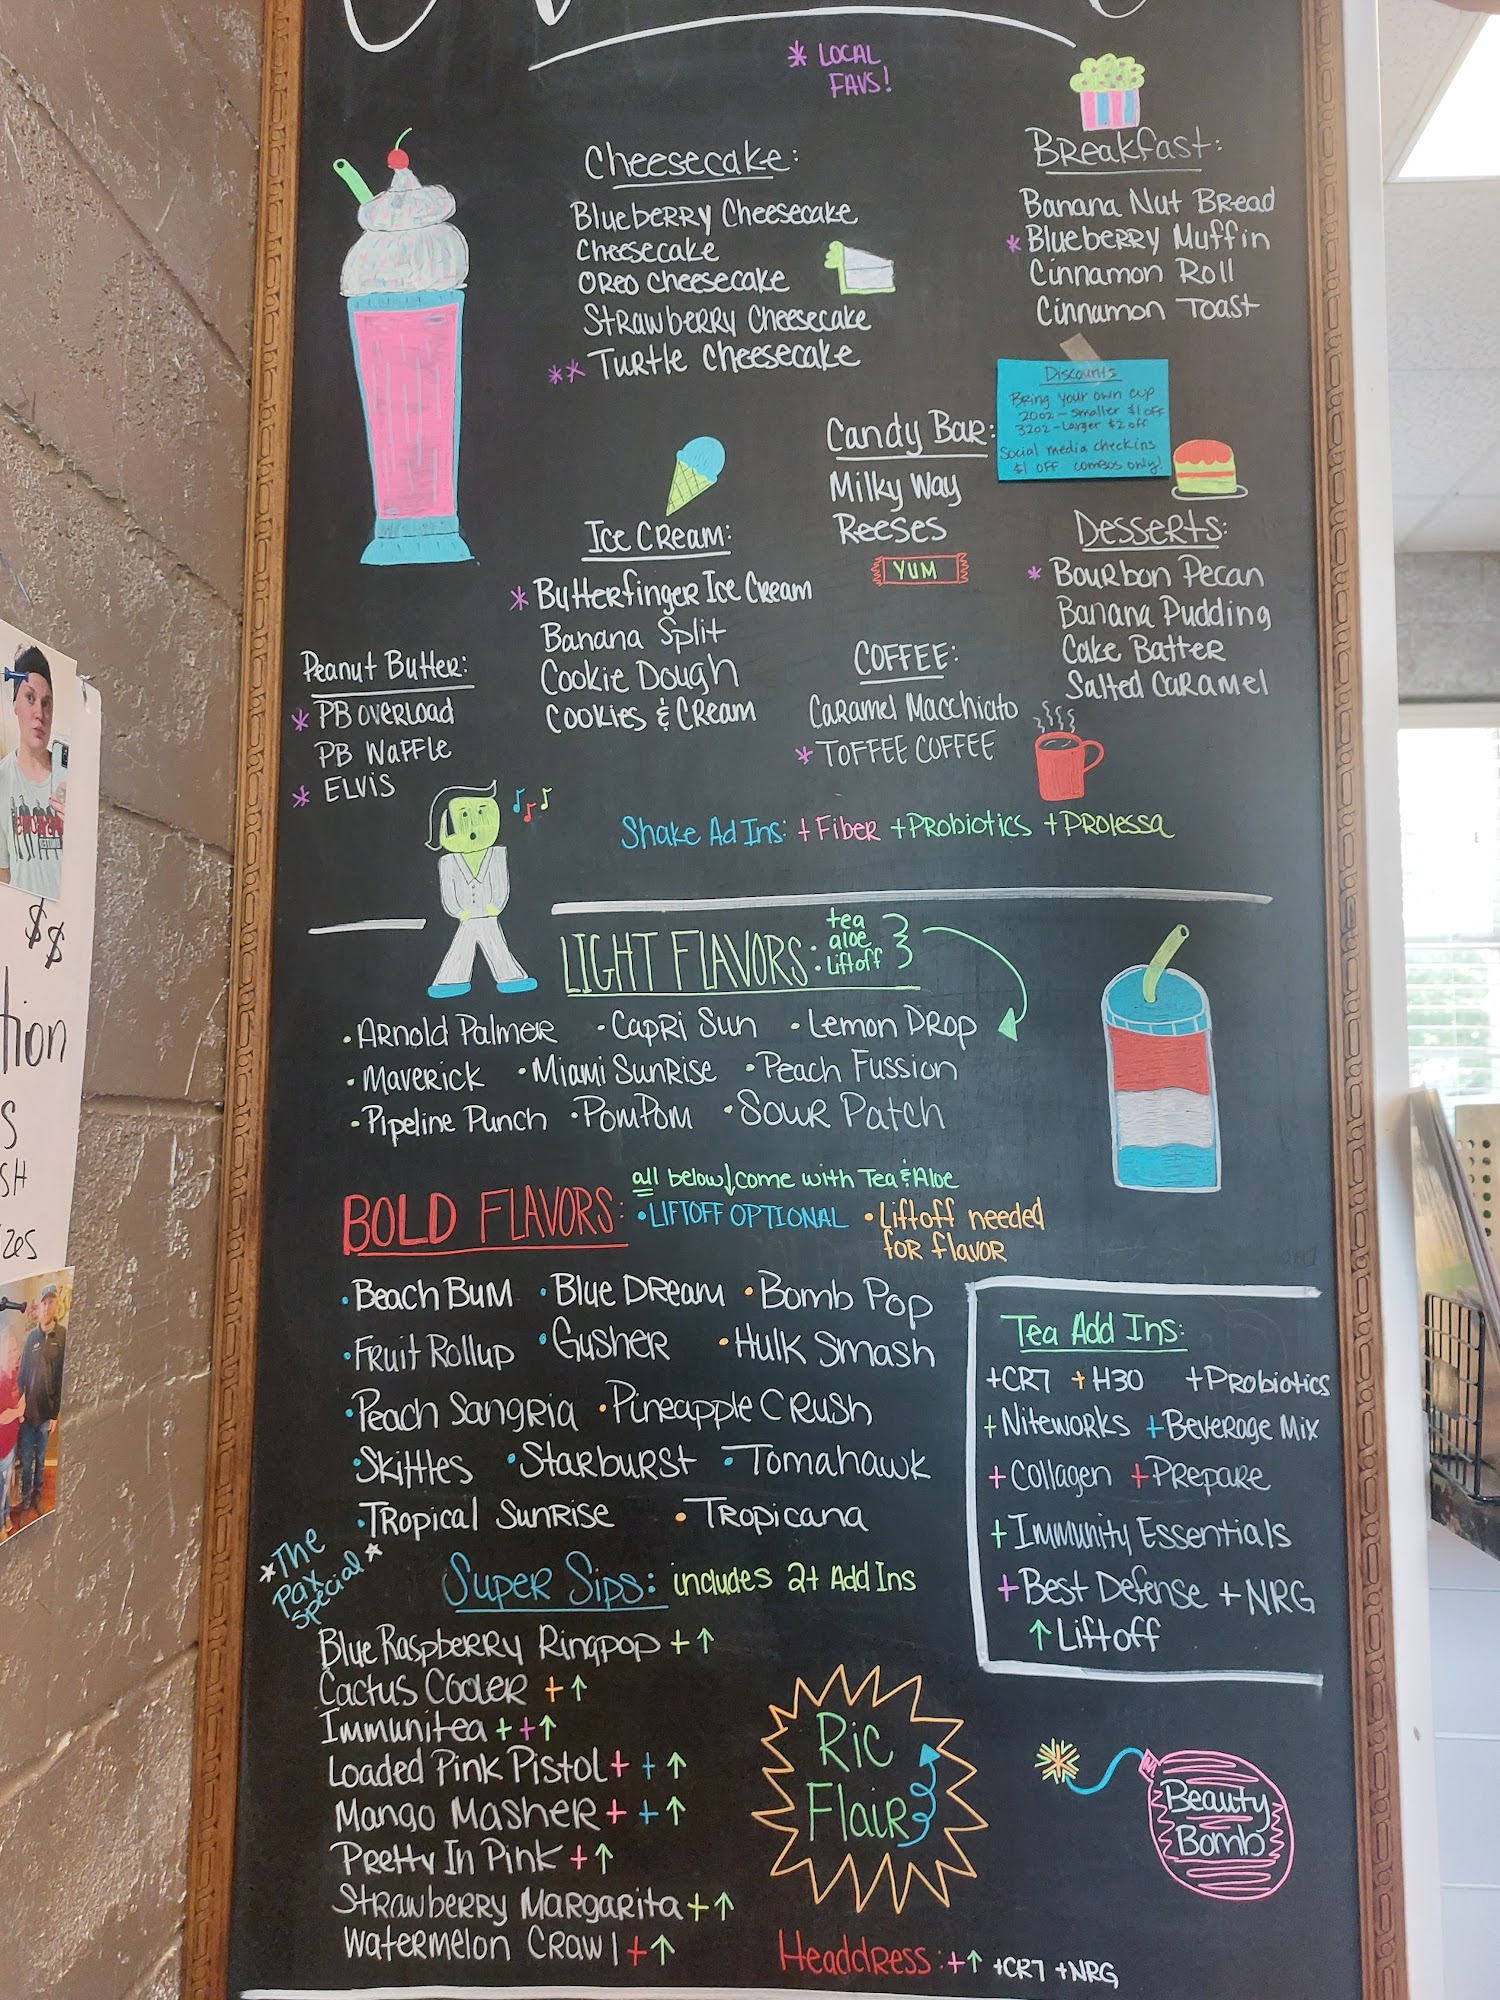 * LOCAL
FAVS!
Cheesecake:
Blueberry Cheesecake
Cheesecake
Oreo Cheesecake
Strawberry Cheesecake
** Turtle Cheesecake
Breakfast:
Banana Nut Bread
* Blueberry Muffin
Cinnamon Roll
Cinnamon Toast
Discounts
Bring your own cup
20oz - smaller $1 off
32oz - Larger $2 off
Social media checkins
$1 OFF combos only!
Candy Bar:
Milky Way
Reeses
YUM
Ice Cream:
* Butterfinger Ice Cream
Banana Split
Cookie Dough
Cookies & Cream
Desserts:
* Bourbon Pecan
Banana Pudding
Cake Batter
Salted Caramel
Peanut Butter:
* PB Overload
PB Waffle
* ELVIS
COFFEE:
Caramel Macchiato
* TOFFEE COFFEE
Shake Ad Ins: + Fiber + Probiotics + Prolessa
LIGHT FLAVORS:
tea
• aloe
• Liftoff
• Arnold Palmer • Capri Sun • Lemon Drop
• Maverick • Miami Sunrise • Peach Fussion
• Pipeline Punch • PomPom • Sour Patch
all below ↓ come with Tea & Aloe
BOLD FLAVORS: • LIFTOFF OPTIONAL • Liftoff needed
for flavor
• Beach Bum • Blue Dream • Bomb Pop
• Fruit Rollup • Gusher • Hulk Smash
• Peach Sangria • Pineapple Crush
• Skittles • Starburst • Tomahawk
• Tropical Sunrise • Tropicana
Tea Add Ins:
+CR7 +H30 +Probiotics
+Niteworks +Beverage Mix
+Collagen +Prepare
+Immunity Essentials
+Best Defense +NRG
↑ Liftoff
* The
Pax
Special *
Super Sips: includes 2+ Add Ins
Blue Raspberry Ringpop + ↑
Cactus Cooler + ↑
Immunitea + + ↑
Loaded Pink Pistol + + ↑
Mango Masher + + ↑
Pretty In Pink + ↑
Strawberry Margarita + ↑
Watermelon Crawl + ↑
Ric
Flair
Beauty
Bomb
Headdress: + ↑ +CR7 +NRG
$$